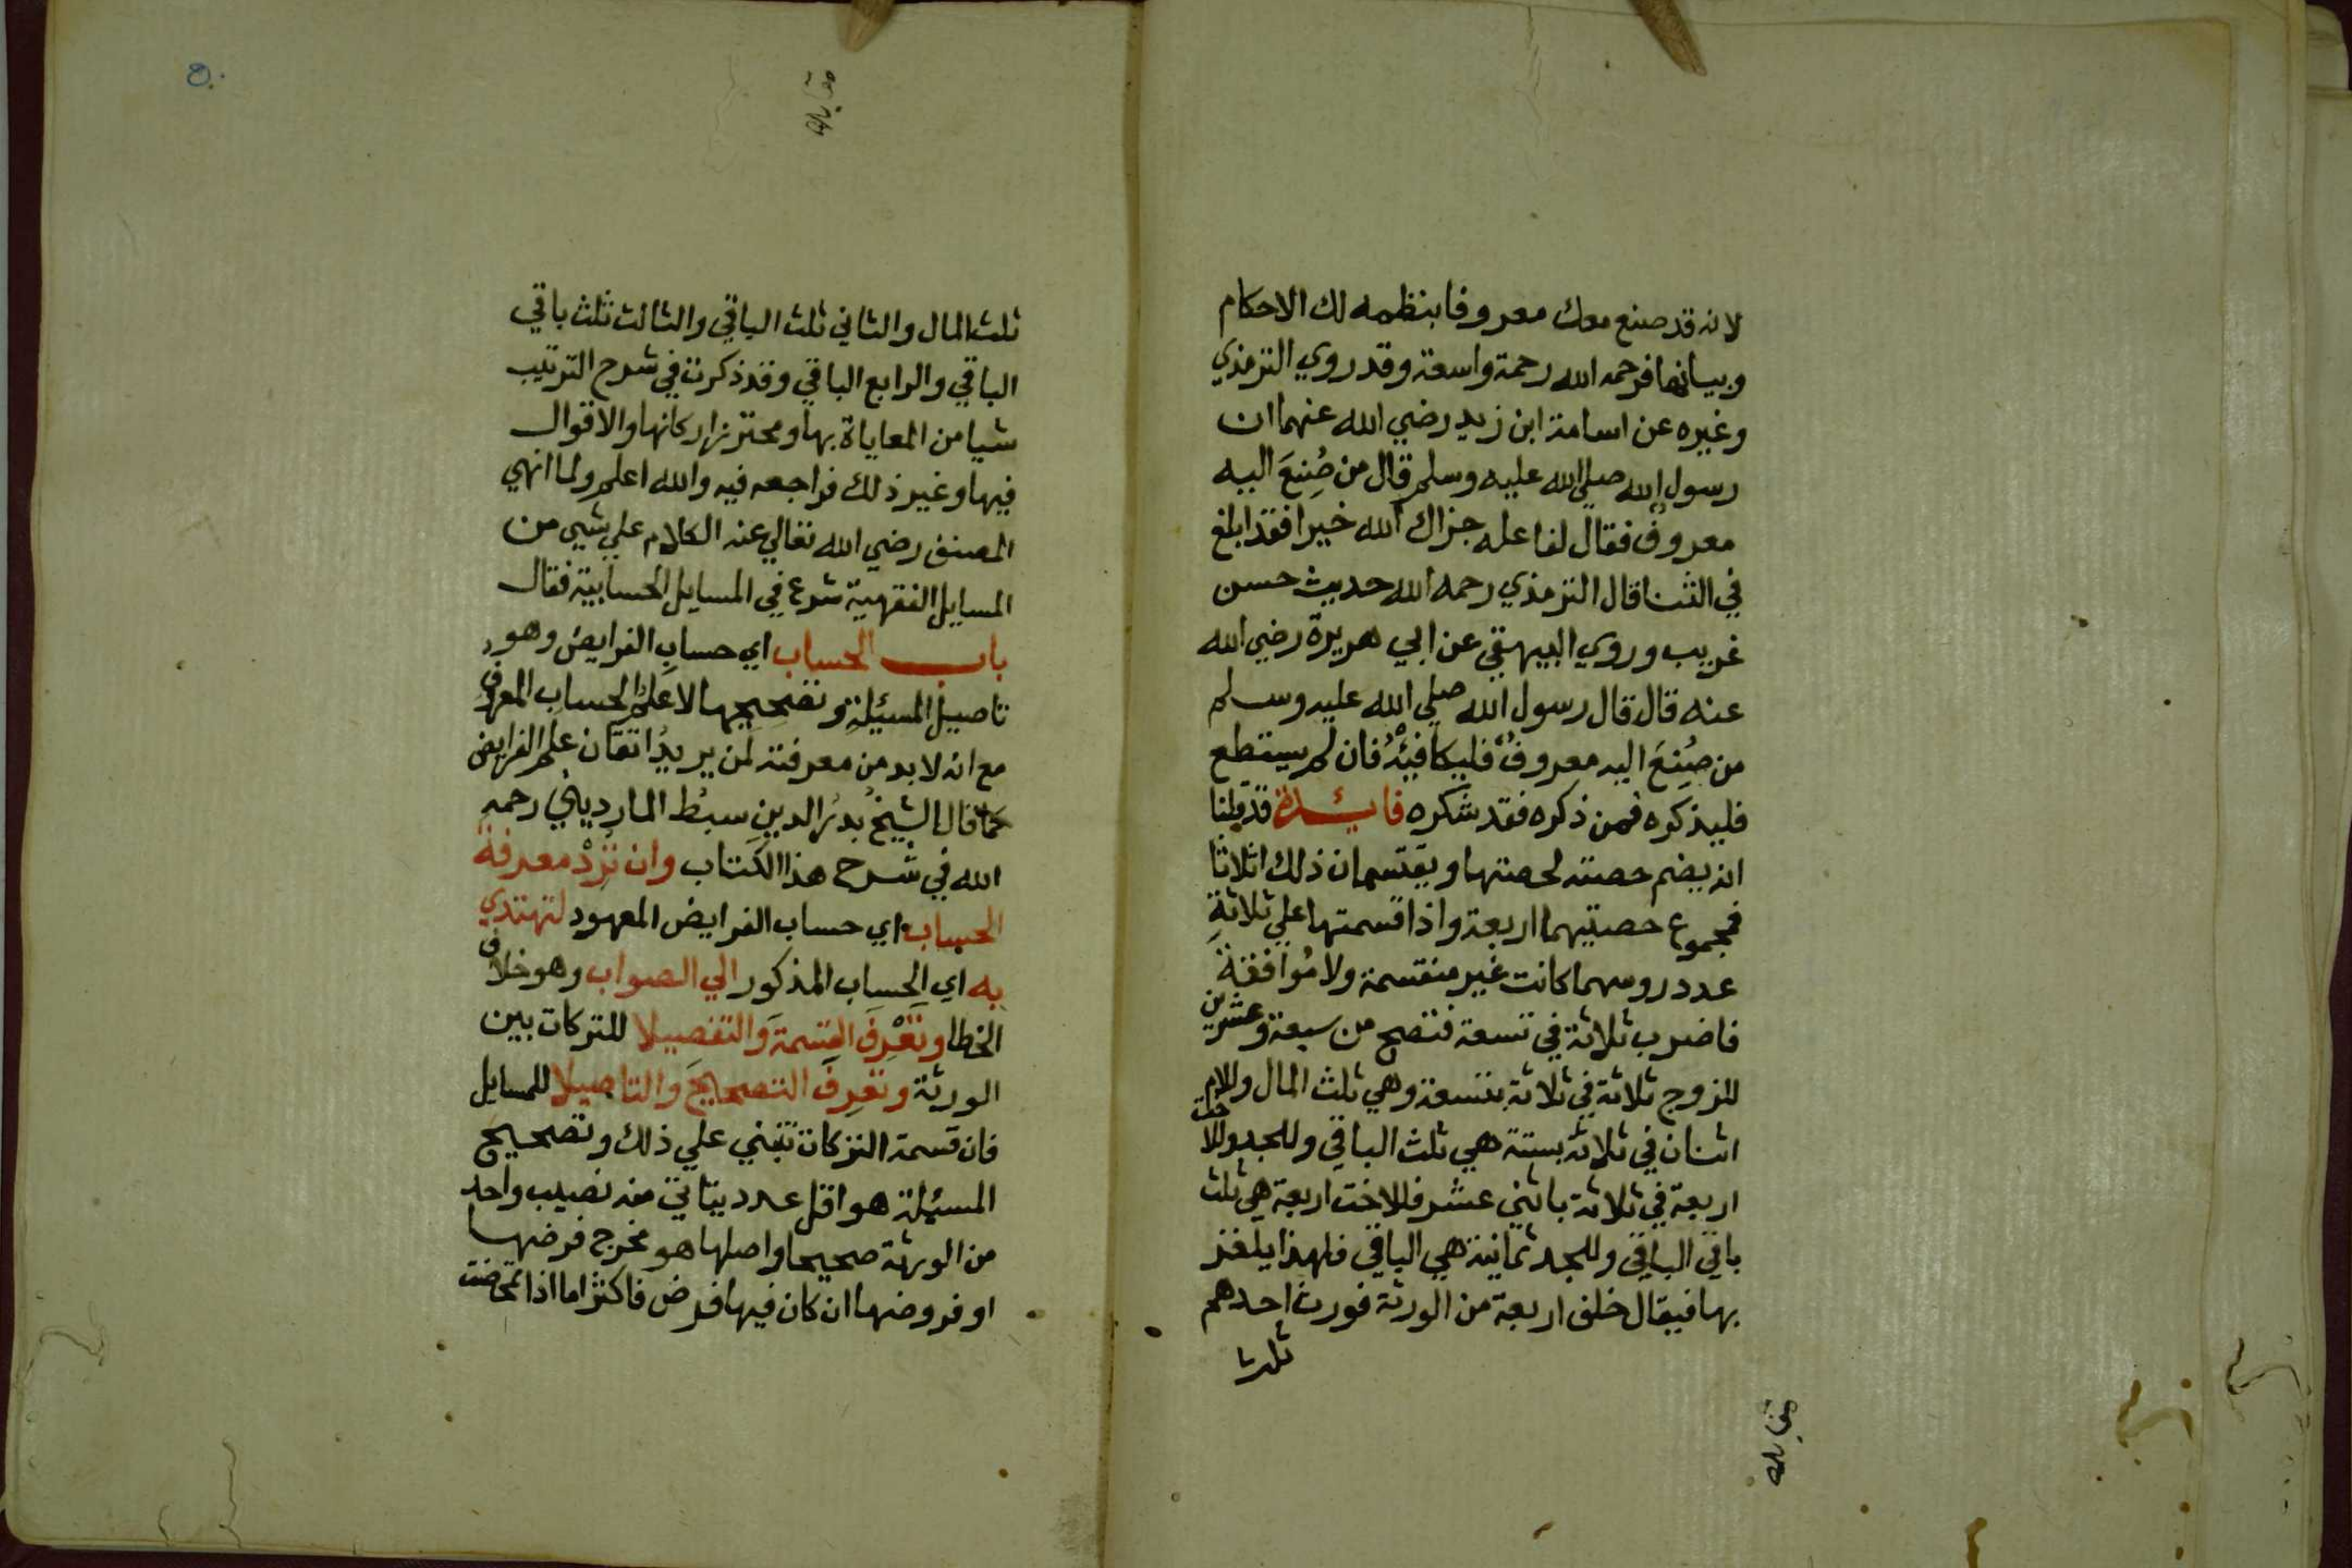 لانه قد صنع معك معروفا بنظمه لك الاحكام
وبيانها فرحمه الله رحمة واسعة وقد روي الترمذي
وغيره عن اسامة ابن زيد رضي الله عنهما ان
رسول الله صلي الله عليه وسلم قال من صُنِعَ اليه
معروفٌ فقال لفاعله جزاك الله خيرا فقد ابلغ
في الثنا قال الترمذي رحمه الله حديث حسن
غريب وروي البيهقي عن ابي هريرة رضي الله
عنه قال قال رسول الله صلي الله عليه وسلم
من صُنِعَ اليه معروفٌ فليكافيْهُ فان لم يستطع
فليذكره فمن ذكره فقد شكره فايئدة قد قلنا
انه يضم حصته لحصتها ويقتسمان ذلك اثلاثا
فمجموع حصتيهما اربعة واذا قسمتها علي ثلاثةِ
عدد روسهما كانت غير منقسمة ولا مُوافقةً
فاضرب ثلاثة في تسعة فتصح من سبعة وعشرين
للزوج ثلاثة في ثلاثة بتسعة وهي ثلث المال وللام
اثنان في ثلاثة بستة هي ثلث الباقي وللجد وللاخت
اربعة في ثلاثة باثني عشر فللاخت اربعة هي ثلث
باقي الباقي وللجد ثمانية هي الباقي فلهذا يلغز
بها فيقال خلف اربعة من الورثة فورث احدهم
ثلث
ثلث المال والثاني ثلث الباقي والثالث ثلث باقي
الباقي والرابع الباقي وقد ذكرت في شرح الترتيب
شيا من المعاياة بها ومحترز اركانها والاقوال
فيها وغير ذلك فراجعه فيه والله اعلم ولما انهي
المصنف رضي الله تعالي عنه الكلام علي شيي من
المسايل الفقهية شرع في المسايل الحسابية فقال
باب الحساب اي حسابِ الفرايض وهو
تاصيل المسئيلةِ وتصحيحها لا علم الحساب المعروف
مع انه لا بد من معرفته لمن يريدُ اتقان علم الفرايض
كما قال الشيخُ بدرُ الدين سبطُ المارديني رحمه
الله في شرح هذا الكتاب وان تُرِدْ معرفةَ
الحساب اي حساب الفرايض المعهود لتهتدي
به اي الحساب المذكور الي الصواب وهو خلاف
الخطا وتَعْرِفَ القسمةَ والتفصيلا للتركات بين
الورثة وتعرفَ التصحيحَ والتاصيلا للمسايل
فان قسمة التركات تبتني علي ذلك وتصحيح
المسئيلة هو اقل عدد يتاتي منه نصيب واحد
من الورثة صحيحا واصلها هو مخرج فرضها
او فروضها ان كان فيها فرض فاكثر اما اذا تمحضت